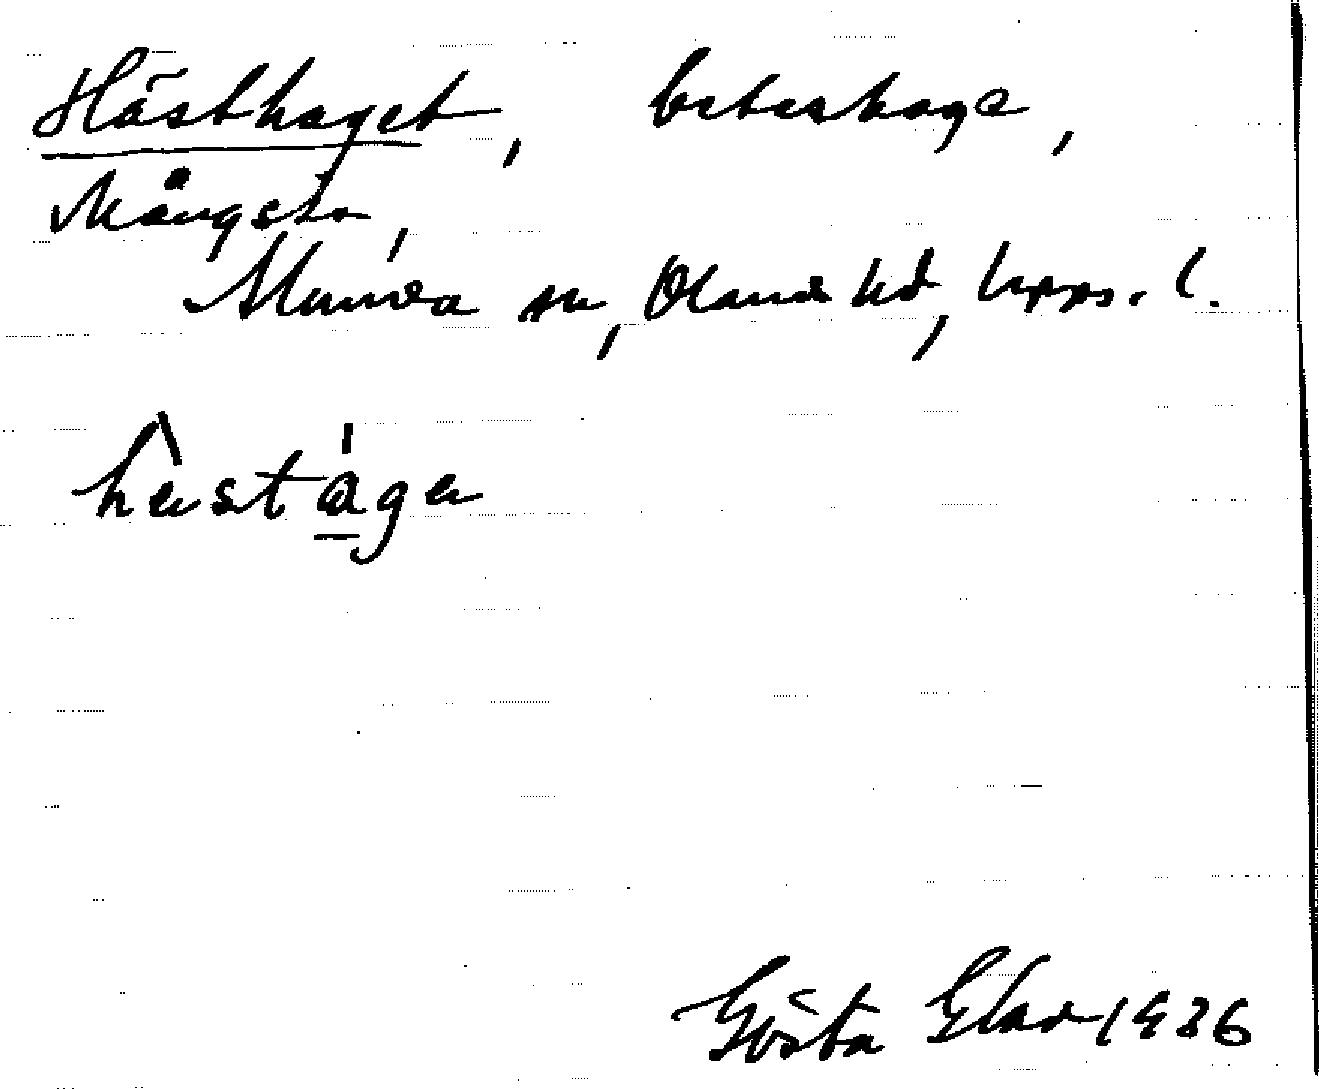 Hästhaget, beteshage,
Mångsbo,
Alunda sn, Olands hd, Upps. l.
hæstága
Gösta Elar 1936